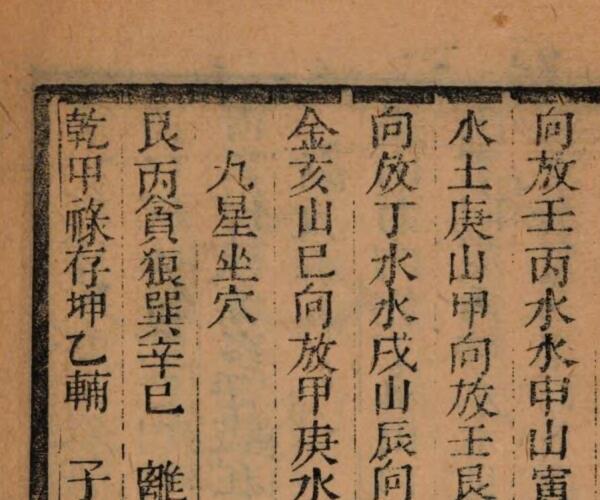 向放壬丙水水申山寅
水土庚山甲向放壬艮
向放丁水水戌山辰向
金亥山巳向放甲庚水
九星坐穴
艮丙貪狼巽辛巳 離
乾甲祿存坤乙輔 子